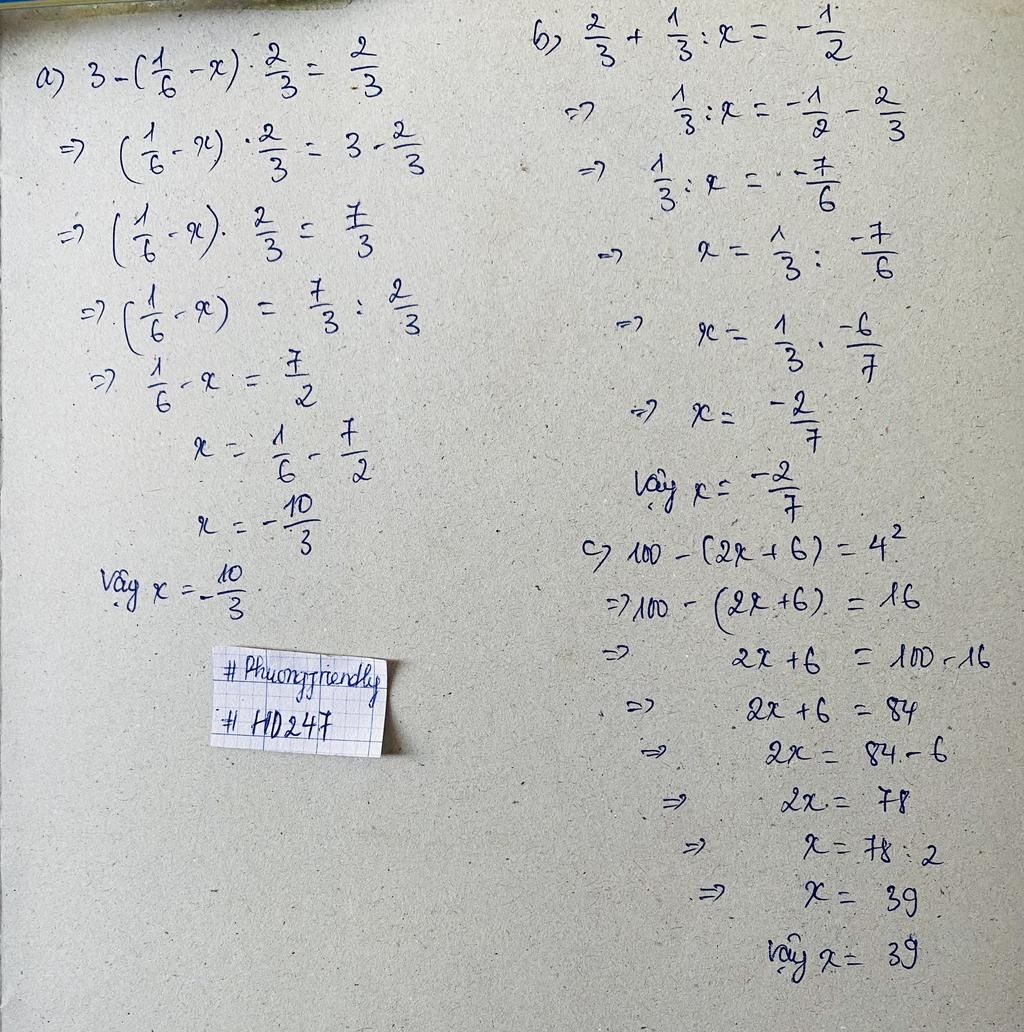 a) 3 - (1/6 - x) · 2/3 = 2/3
=> (1/6 - x) · 2/3 = 3 - 2/3
=> (1/6 - x) · 2/3 = 7/3
=> (1/6 - x) = 7/3 : 2/3
=> 1/6 - x = 7/2
x = 1/6 - 7/2
x = -10/3
Vậy x = -10/3
# Phuongfriendly
# HD247
b) 2/3 + 1/3 : x = -1/2
=> 1/3 : x = -1/2 - 2/3
=> 1/3 : x = -7/6
=> x = 1/3 : -7/6
=> x = 1/3 . -6/7
=> x = -2/7
Vậy x = -2/7
c) 100 - (2x + 6) = 4²
=> 100 - (2x + 6) = 16
=> 2x + 6 = 100 - 16
=> 2x + 6 = 84
=> 2x = 84 - 6
=> 2x = 78
=> x = 78 : 2
=> x = 39
Vậy x = 39